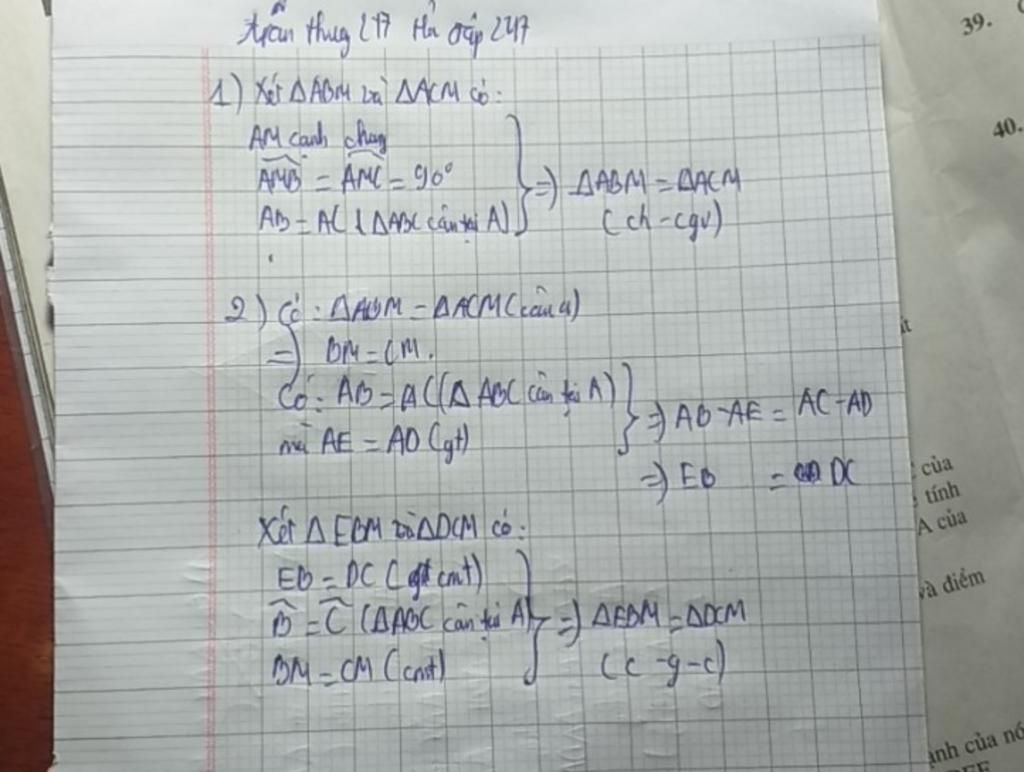 1) Xét ΔABM và ΔACM có:
AM cạnh chung
AMB = AMC = 90°
AB = AC (ΔABC cân tại A)
⇒ ΔABM = ΔACM
(ch - cgv)
2) Có: ΔABM = ΔACM (câu a)
⇒ BM = CM.
Có: AB = AC (ΔABC cân tại A)
mà AE = AD (gt)
⇒ AB - AE = AC - AD
⇒ EB = DC
Xét ΔEBM và ΔDCM có:
EB = DC (cmt)
B = C (ΔABC cân tại A)
BM = CM (cmt)
⇒ ΔEBM = ΔDCM
(c - g - c)
39.
40.
của
tính
A của
và điểm
ạnh của nó